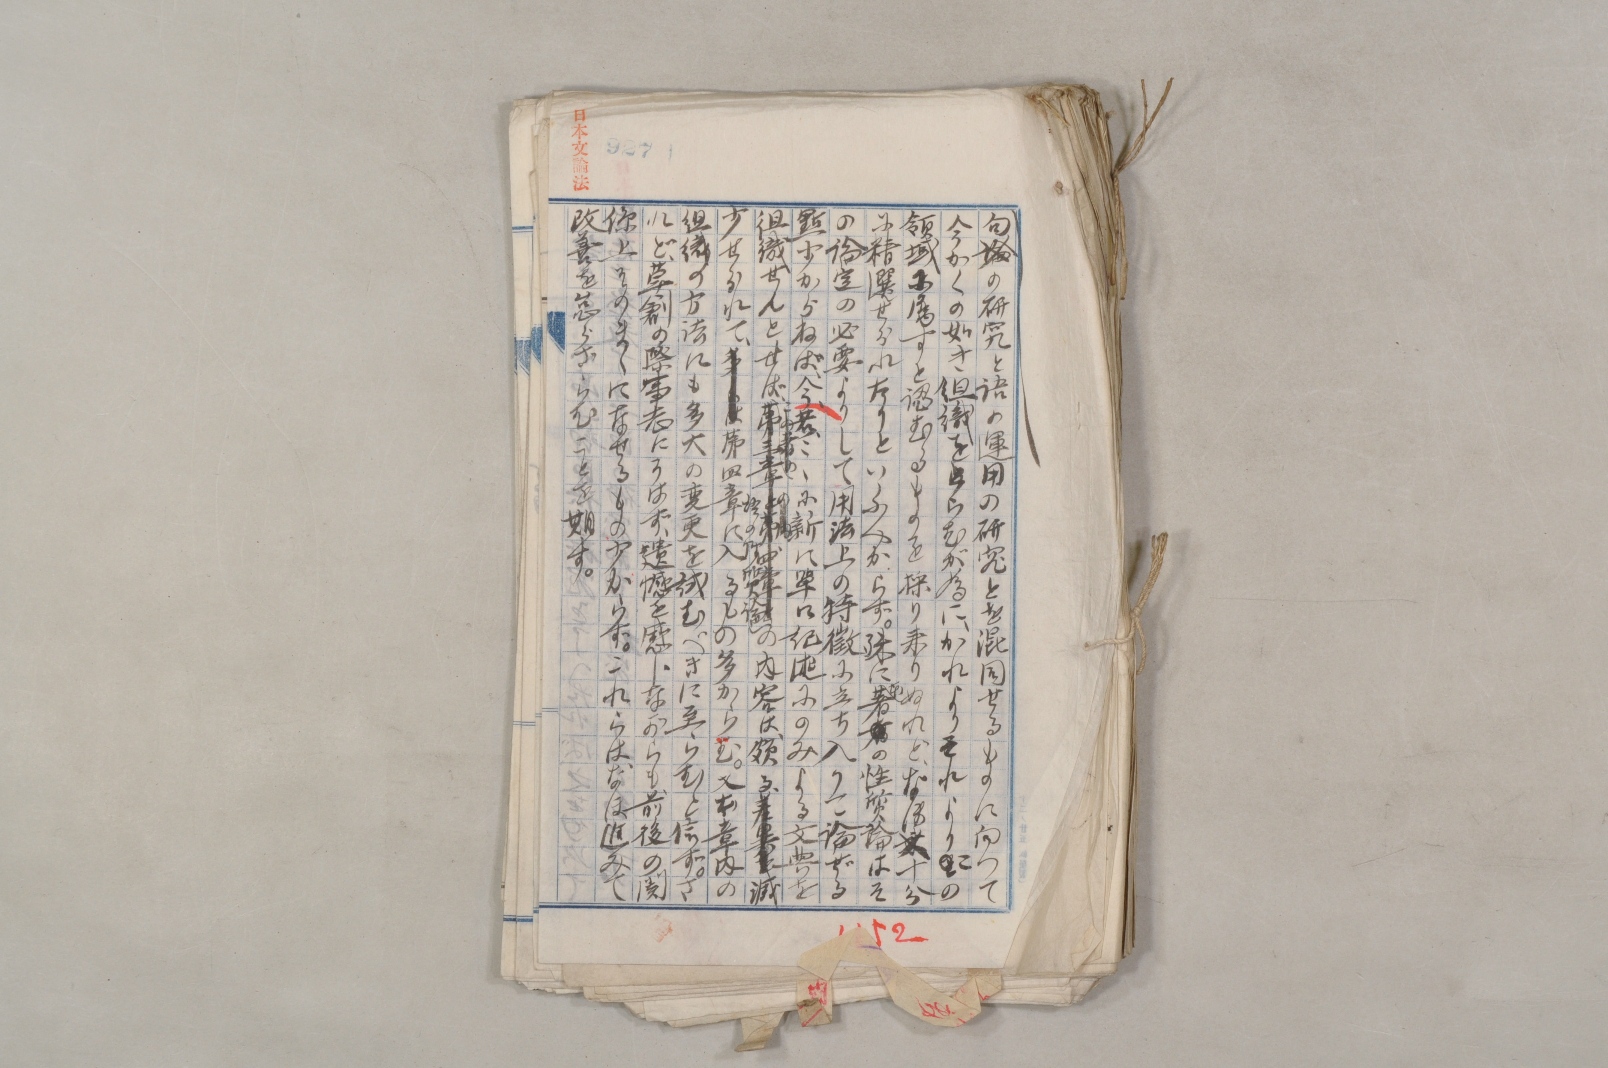 日本文論法
927
句論の研究と語の運用の研究とを混同せるものに向つて
今かくの如き組織をとらむが為に、かれよりそれより它の
領域に属すと認むるものを採り来りぬれど、なほ十分
に精選せられたりといふべからず。殊に著者の性質論はそ
の論定の必要よりして用法上の特徴に立ち入りて論ぜる
點少からねば、今若、ここに新に単に記述にのみよる文典を
組織せんとせば、の内容は頗る減
少せられて、は第四章に入るもの多からむ。又本章内の
組織の方法にも多大の変更を試むべきに至らむと信ず。さ
れど、草創の際事志にそはず、遺憾を感じながらも前後の関
係上そのまゝになせるもの少からず。これらは、なほ進みて
改善を怠らざらむことを期す。
1152